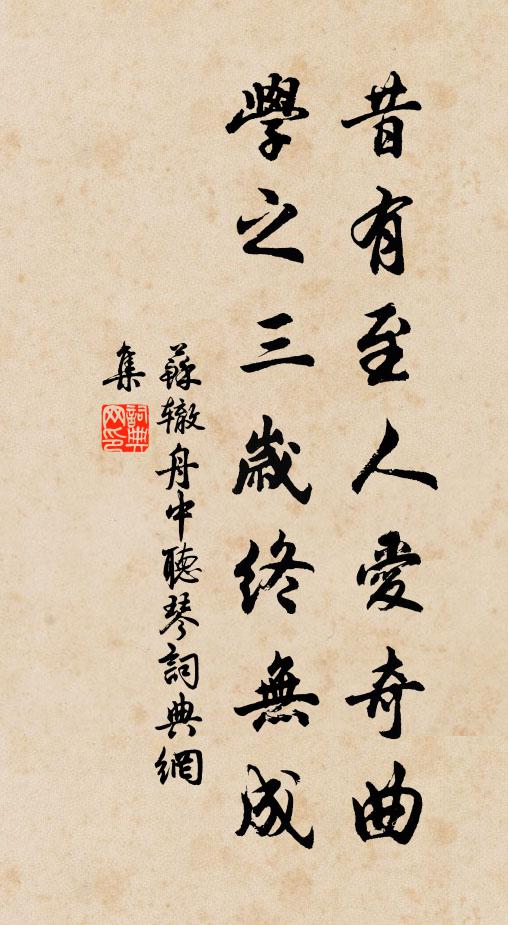 昔有至人愛奇曲
學之三歲終無成
蘇辙舟中聽琴詞典網
集
詞典
网印